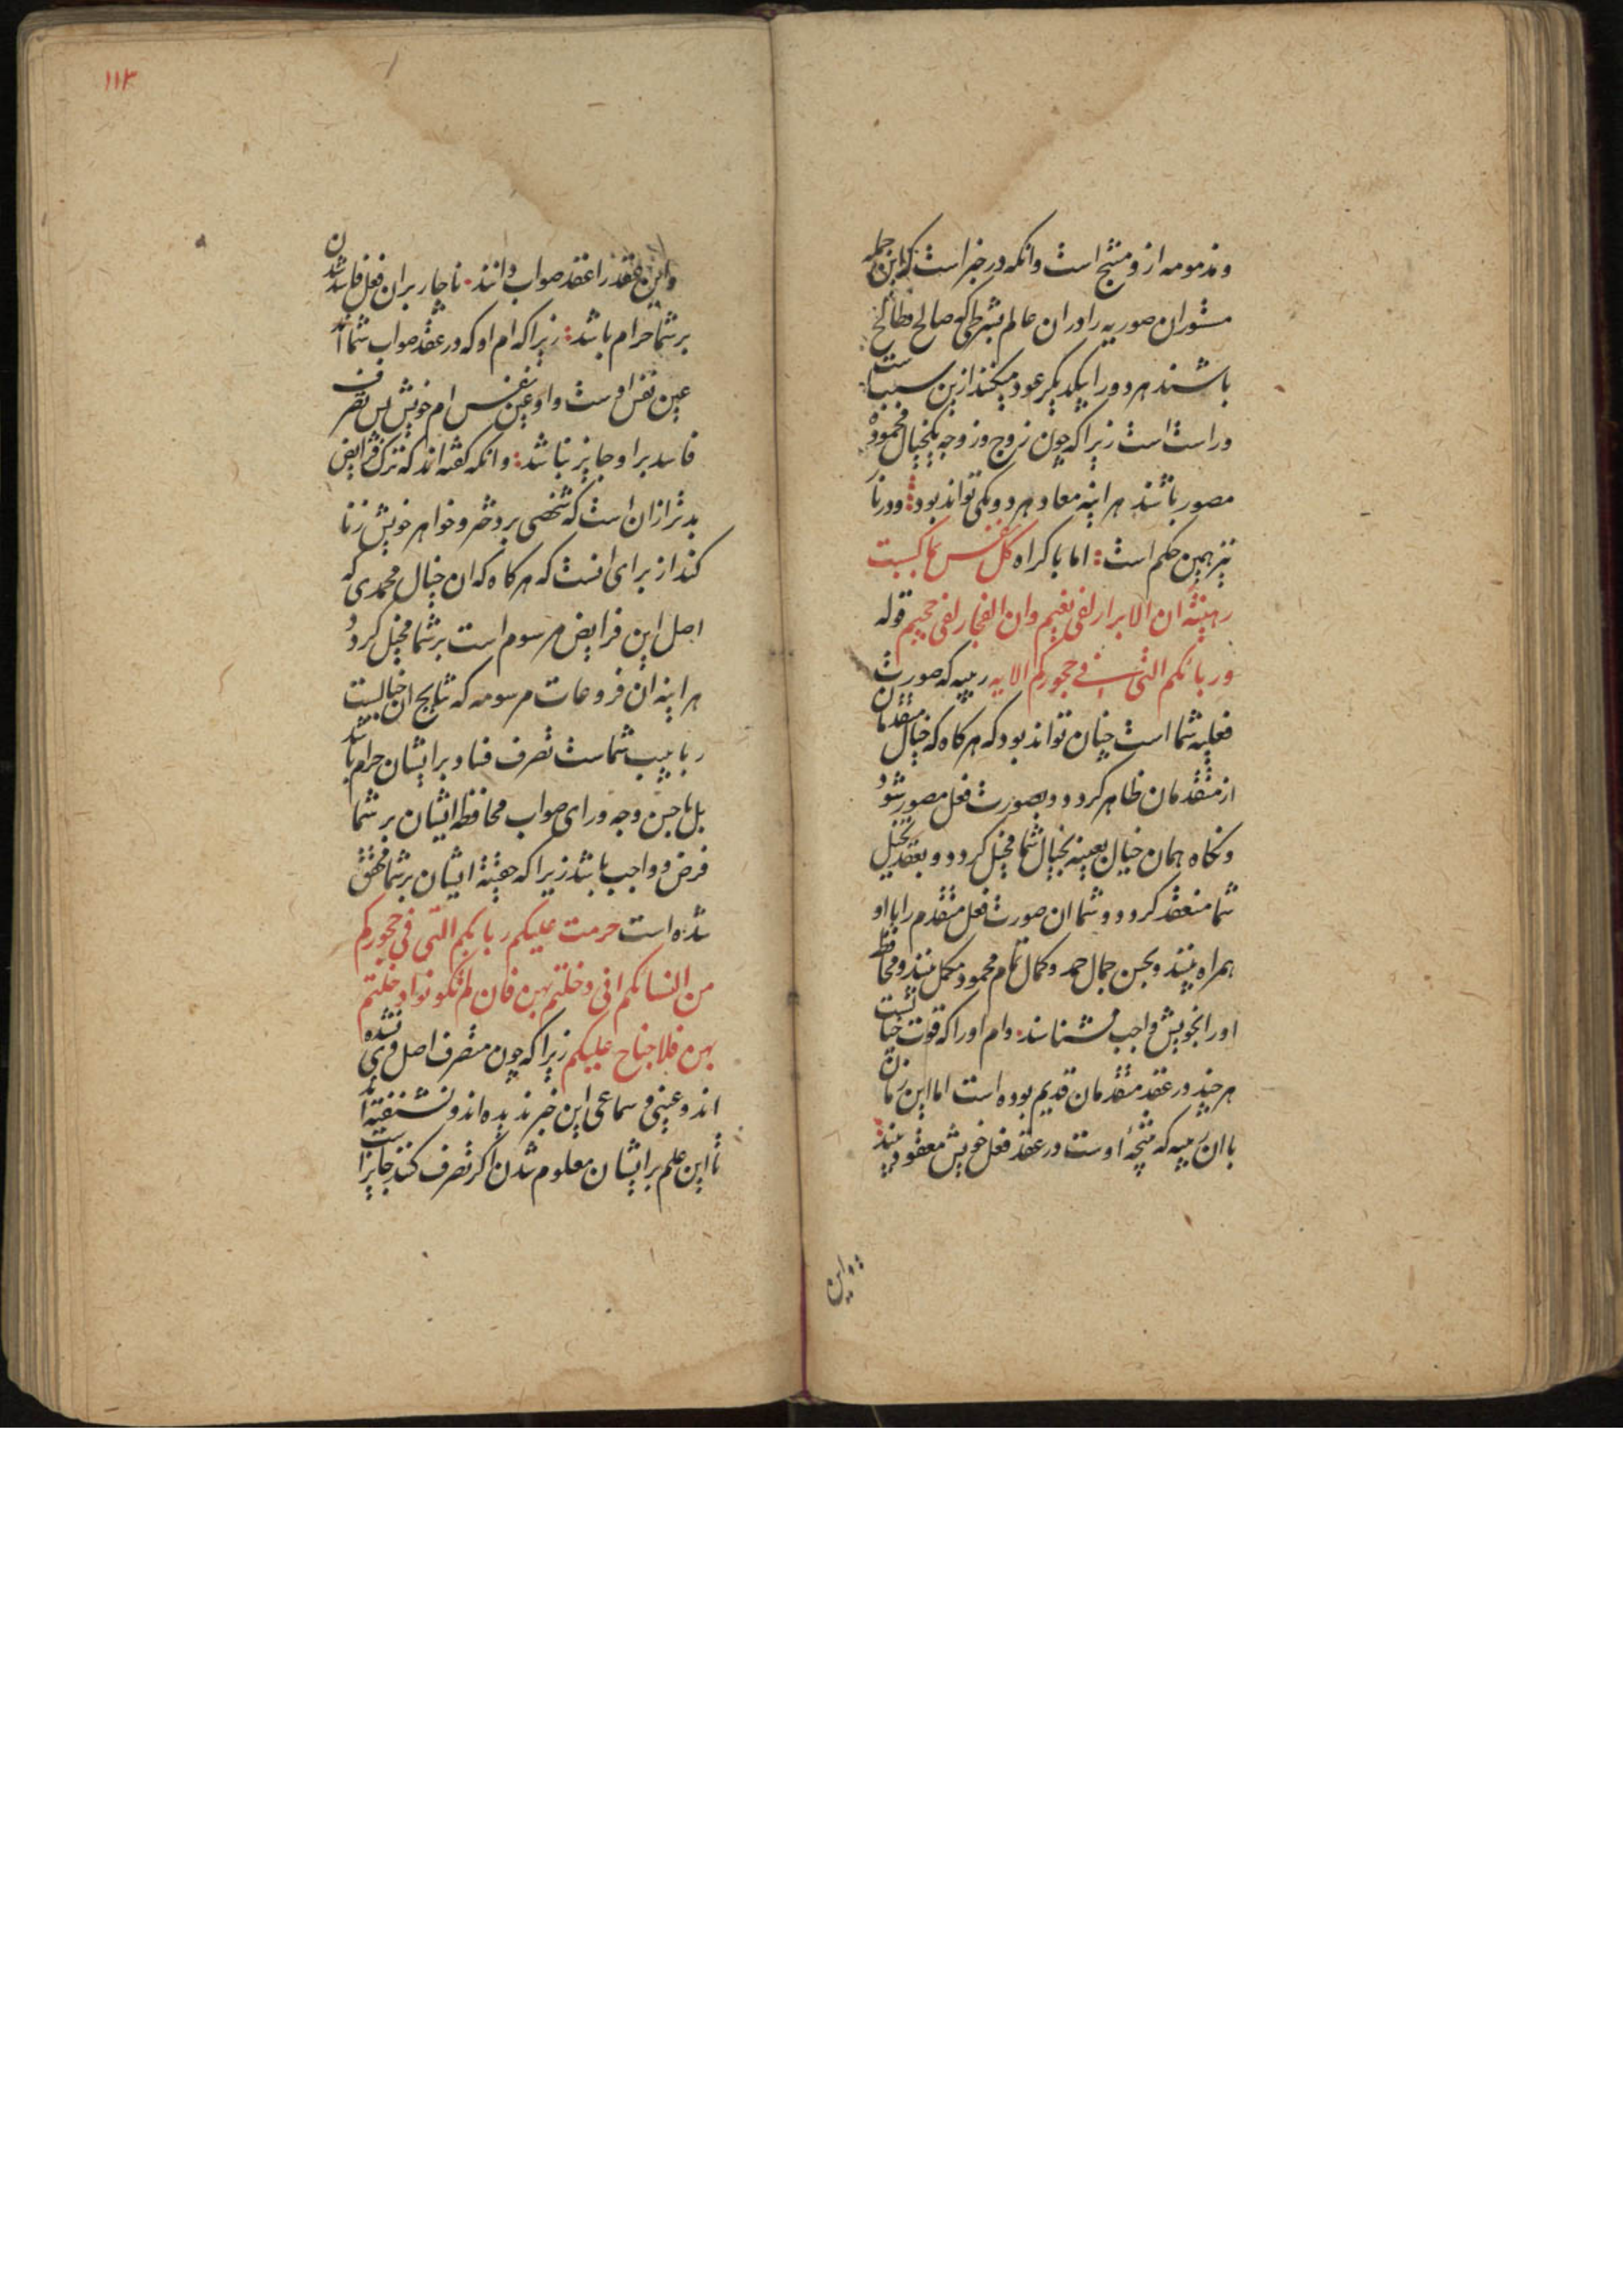 ومذمومه ازو منتج است وانکه در خبر است که این جمله
مستوران صوریه را دران عالم بشرطی که صالح وطالح
باشند هر دو را بیکدیکر عود میکنند ازین سبب است
وراست است زیرا که چون زوج وزوجه بیکخیال محموده
مصور باشند هراینه معاد هر دو یکی تواند بود ودر نار
نیز همین حکم است اما باکراه کل نفس بما کسبت
رهینة ان الابرار لفی نعیم وان الفجار لفی جحیم قوله
وربائبکم التی فی حجورکم الایه ربیبه که صورت
فعلیه شما است چنان تواند بود که هرکاه که خیال متقدمان
از متقدمان ظاهر کردد وبصورت فعل مصور شود
ونکاه همان خیال بعینه بخیال شما مخیل کردد وبعقد تخیل
شما منعقد کردد وشما ان صورت فعل متقدم را با او
همراه بینند وبحسن جمال حمد وکمال تمام محمود مکمل بینند ومحافظت
او را بخویش واجب شناسند وام او را که قوت خیالست
هر چند در عقد متقدمان قدیم بوده است اما این زمان
با ان ربیبه که نتیجه اوست در عقد فعل خویش معقود بینند
واین
۱۱۳
واین عقد را عقد صواب دانند ناچار بران فعل فاسد شدن
بر شما حرام باشد زیرا که ام او که در عقد صواب شما اند
عین نفس اوست واو عین نفس ام خویش پس تصرف
فاسد بر او جایز نباشد وانکه کفته اند که ترک فرایض
بدتر ازان است که شخصی بر دختر وخواهر خویش زنا
کند از برای انست که هرکاه که ان خیال محمدی که
اصل این فرایض مرسوم است بر شما مخیل کردد
هراینه ان فروعات مرسومه که نتایج ان خیالست
ربایب شماست تصرف فساد بر ایشان حرام باشد
بل باحسن وجه ورای صواب محافظه ایشان بر شما
فرض وواجب باشد زیرا که حقیة ایشان بر شما محقق
شده است حرمت علیکم ربائبکم التی فی حجورکم
من النسائکم التی دخلتم بهن فان لم تکونوا دخلتم
بهن فلا جناح علیکم زیرا که چون متصرف اصل وی نشده
اند وعینی وسماعی این خبر ندیده اند ونشنفته اند
تا این علم بر ایشان معلوم شدن اکر تصرف کنند جایز است